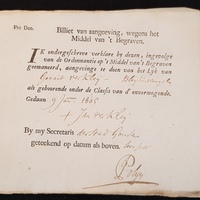 Pro Deo.
Billiet van aangeeving, wegens het
Middel van 't Begraven.
IK ondergeschreven verklare by dezen, ingevolge
van de Ordonnantie op 't Middel van 't Begraven
geëmaneerd, aangevinge te doen van het Lyk van
als gehoorende onder de Classis van d'onvermogende.
Gedaan 9 Juny 1805
By my Secretaris der Stad Gouda
geteekend op datum als boven.